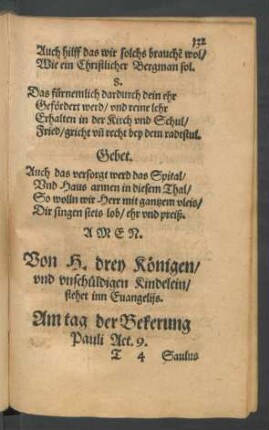 132
Auch hilff das wir solchs brauchē wol/
Wie ein Christlicher Bergman sol.
8.
Das fürnemlich dardurch dein ehr
Gefördert werd/ vnd reine lehr
Erhalten in der Kirch vnd Schul/
Fried/ gricht vñ recht bey dem radtstul.
Gebet.
Auch das versorgt werd das Spital/
Vnd Haus armen in diesem Thal/
So wolln wir Herr mit gantzem vleis/
Dir singen stets lob/ ehr vnd preiß.
A M E N.
Von H. drey Königen/
vnd vnschüldigen Kindelein/
stehet inn Euangelijs.
Am tag der Bekerung
Pauli Act. 9.
T 4 Saulus